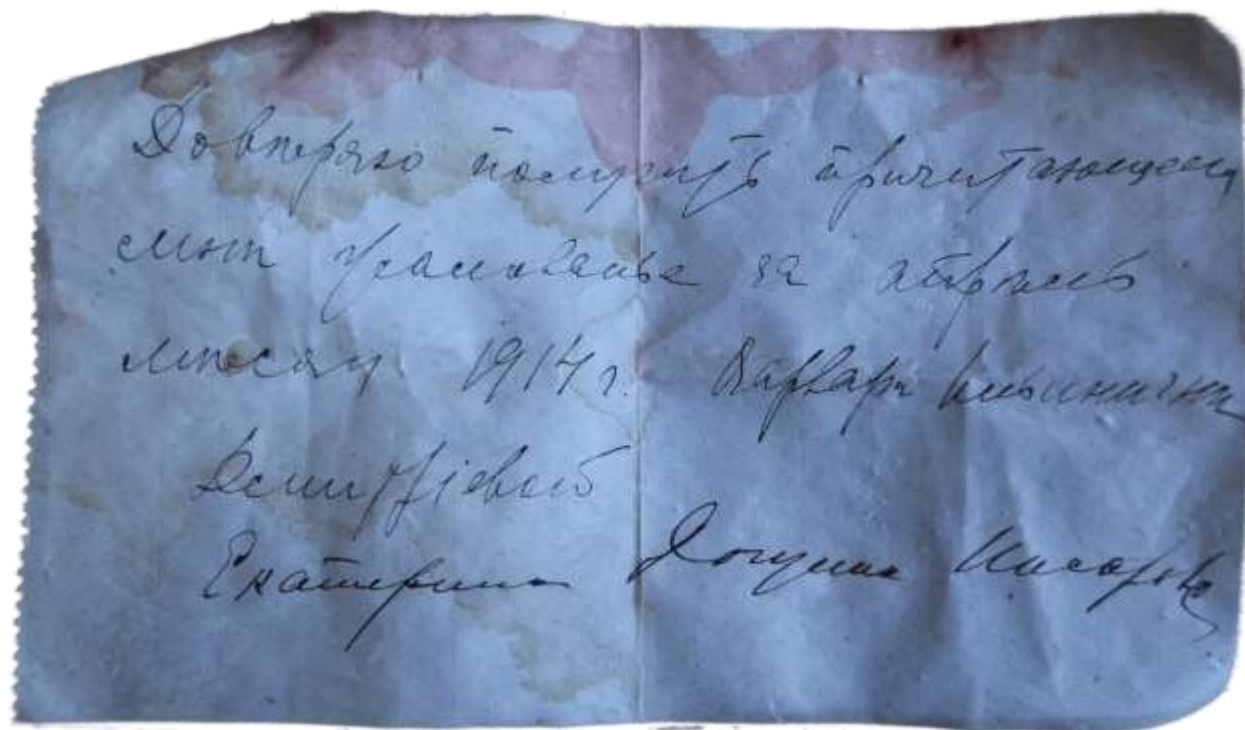 Довѣряю получить причитающееся
мнѣ жалованье за апрѣль
мѣсяцъ 1914 г. Варварѣ Ильиничнѣ
Дмитріевой
Екатерина